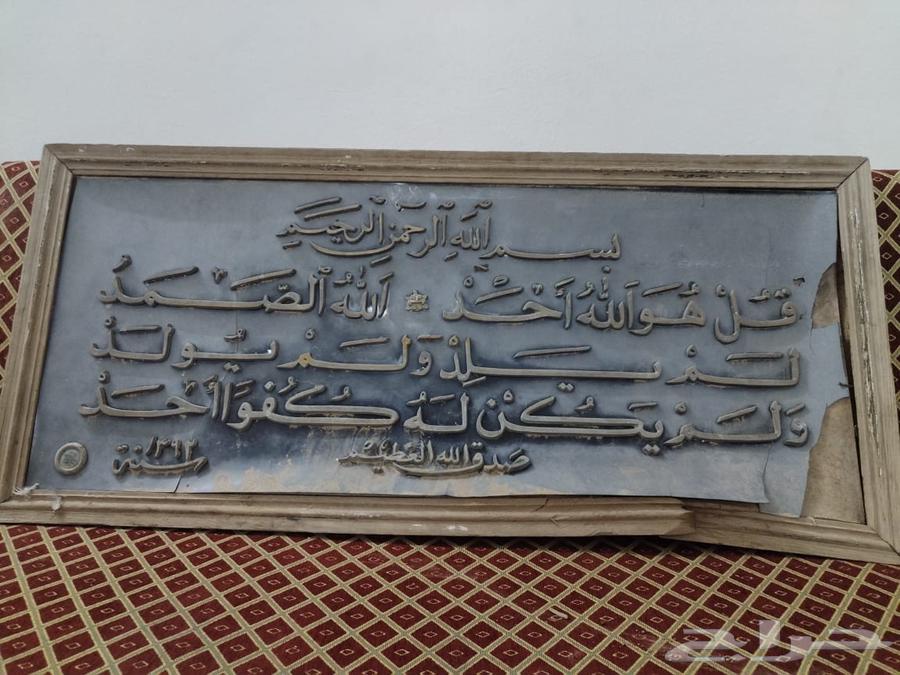 بسم الله الرحمن الرحيم
قُلْ هُوَ اللهُ أَحَدٌ * اللهُ الصَّمَدُ
لَمْ يَلِدْ وَلَمْ يُولَدْ
وَلَمْ يَكُنْ لَهُ كُفُوًا أَحَدٌ
صدق الله العظيم
سنة ١٣٩٢
حراج